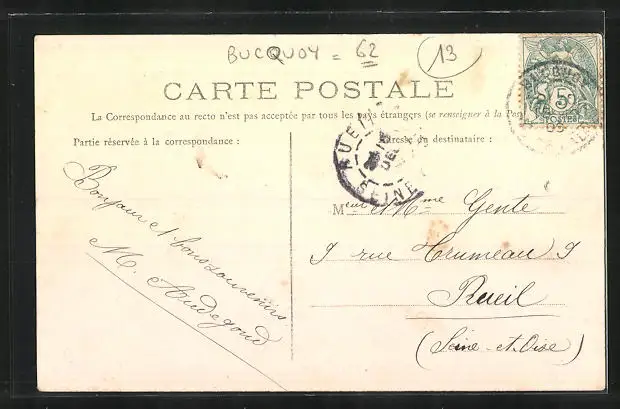 BUCQUOY = 62
13
CARTE POSTALE
La Correspondance au recto n'est pas acceptée par tous les pays étrangers (se renseigner à la Pos
Partie réservée à la correspondance :
Adresse du destinataire :
5c
POSTES
RUEIL
SEINE
Bonjour et bons souvenirs
M. Audegond
Meur et Mme Gente
9 rue Trumeau 9
Rueil
(Seine-et-Oise)